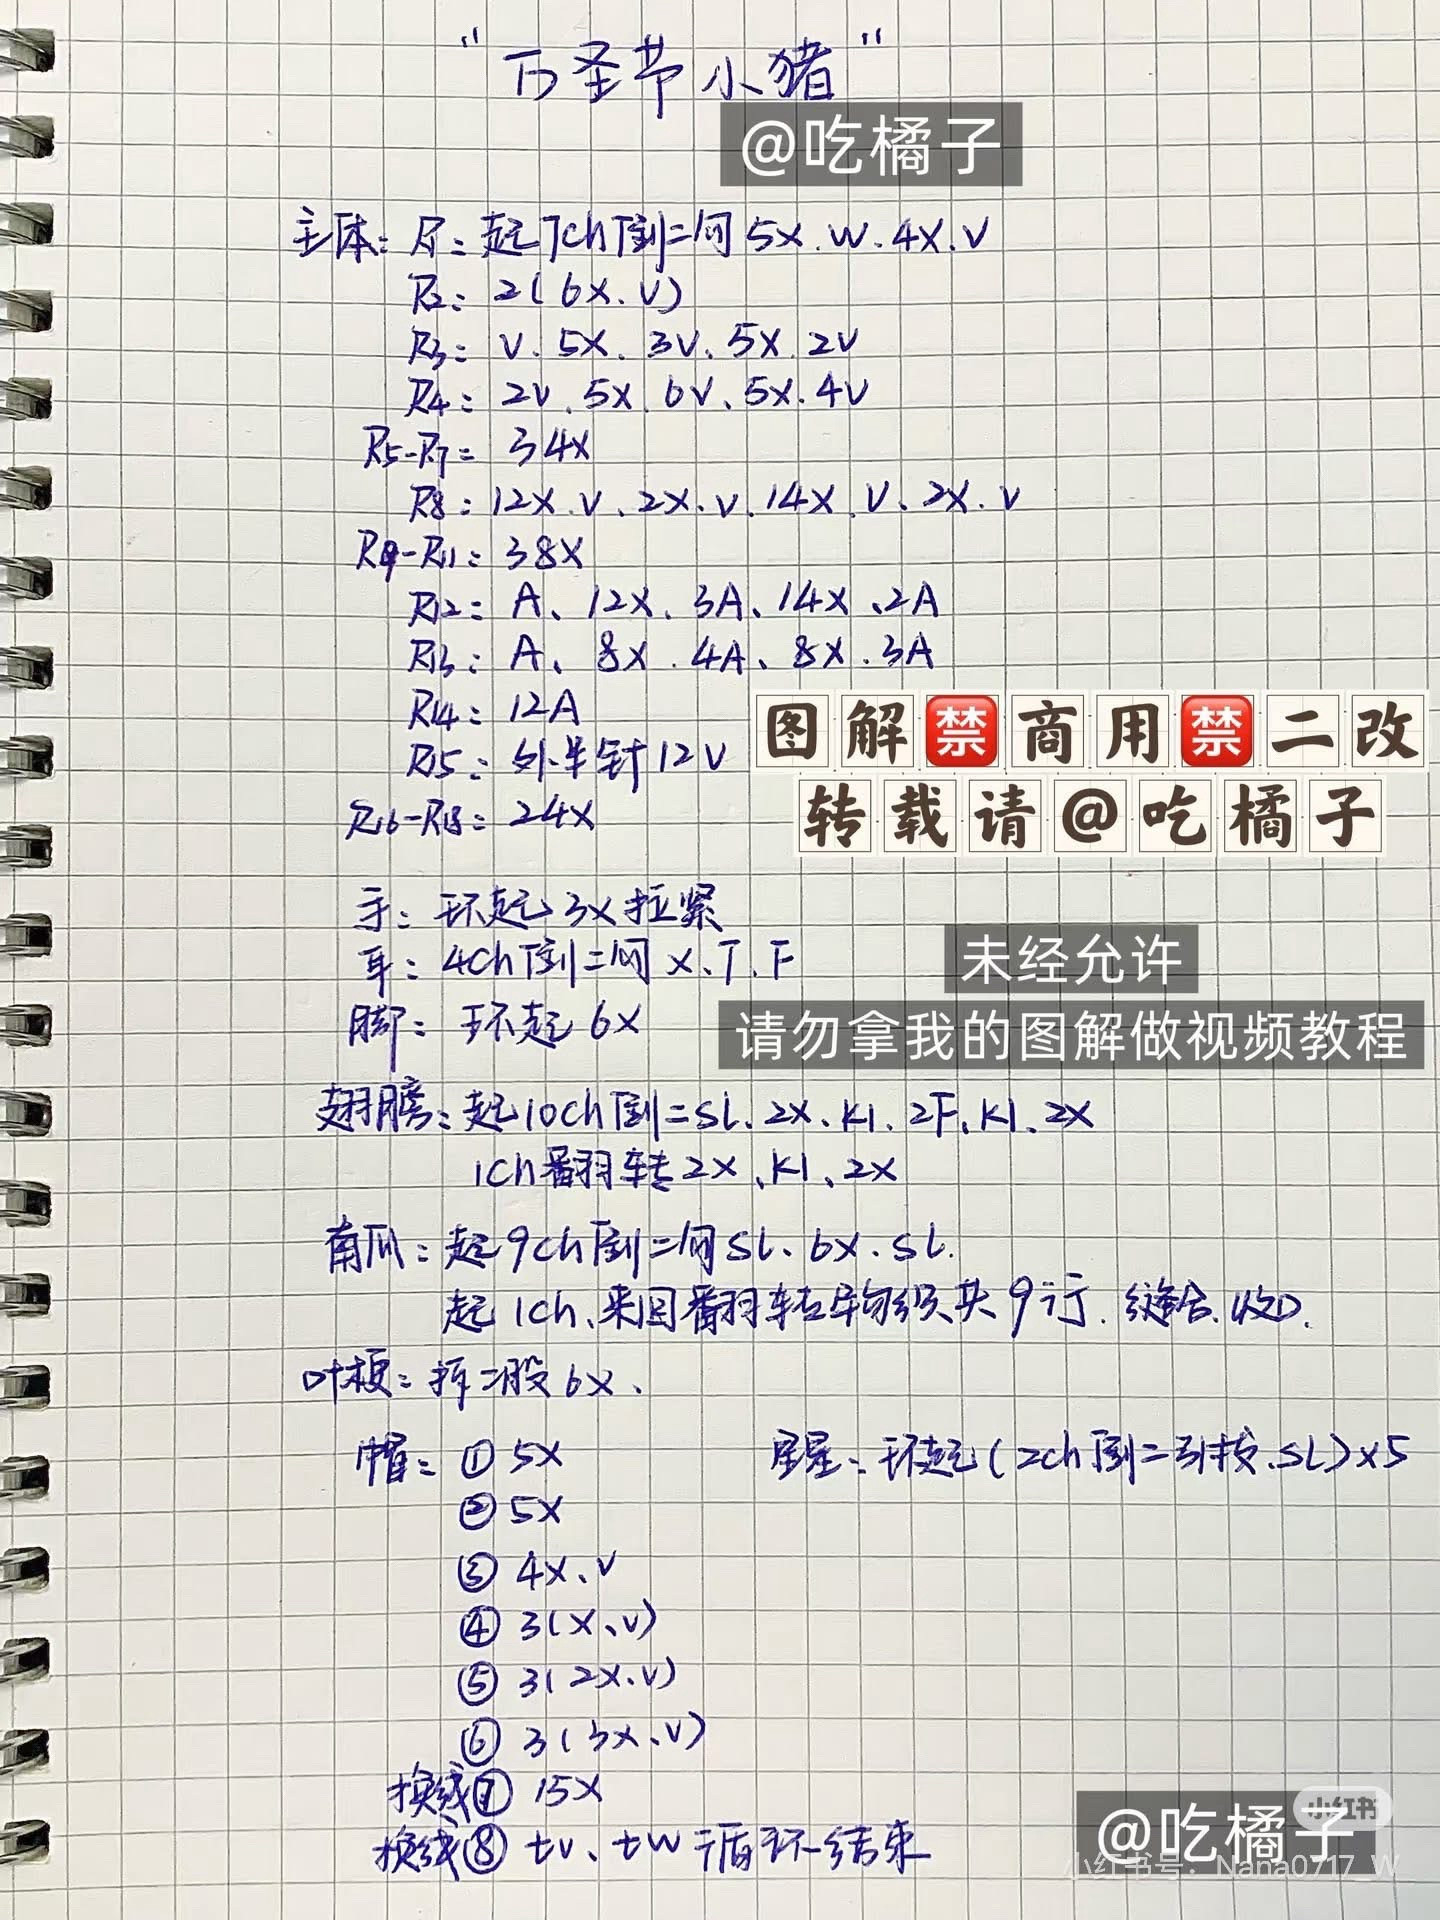 "万圣节小猪"
@吃橘子
主体: R1: 起7ch倒二间5X.W.4X.V
R2: 2(6X.V)
R3: V.5X.3V、5X.2V
R4: 2V、5X.6V、5X.4V
R5-R7: 34X
R8: 12X.V、2X.V.14X.V、2X.V
R9-R11: 38X
R12: A、12X.3A、14X、2A
R13: A、8X.4A、8X.3A
R14: 12A
图解禁商用禁二改
R15: 外半针12V
转载请@吃橘子
R16-R18: 24X
手: 环起3X拉紧
耳: 4ch倒二间X.T.F
未经允许
脚: 环起6X
请勿拿我的图解做视频教程
翅膀: 起10ch倒二SL、2X、K1、2F、K1、2X
1ch翻转2X、K1、2X
南瓜: 起9ch倒二间SL、6X.SL.
起1ch、来回翻转钩织共9行.缝合.收口.
叶梗: 拆二股6X.
帽: ① 5X
星星: 环起(2ch倒二引拔.SL)x5
② 5X
③ 4X、V
④ 3(X、V)
⑤ 3(2X.V)
⑥ 3(3X、V)
换线⑦ 15X
换线⑧ tv、tw循环结束
小红书
@吃橘子
小红书号：Nana0717_W